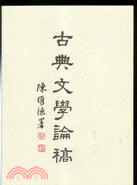 古典文學論稿
陳維德署